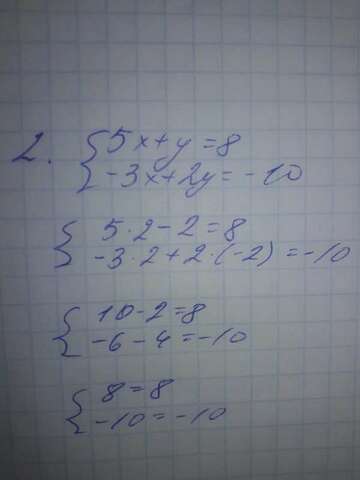 2. 5x+y=8
-3x+2y=-10
5·2-2=8
-3·2+2·(-2)=-10
10-2=8
-6-4=-10
8=8
-10=-10